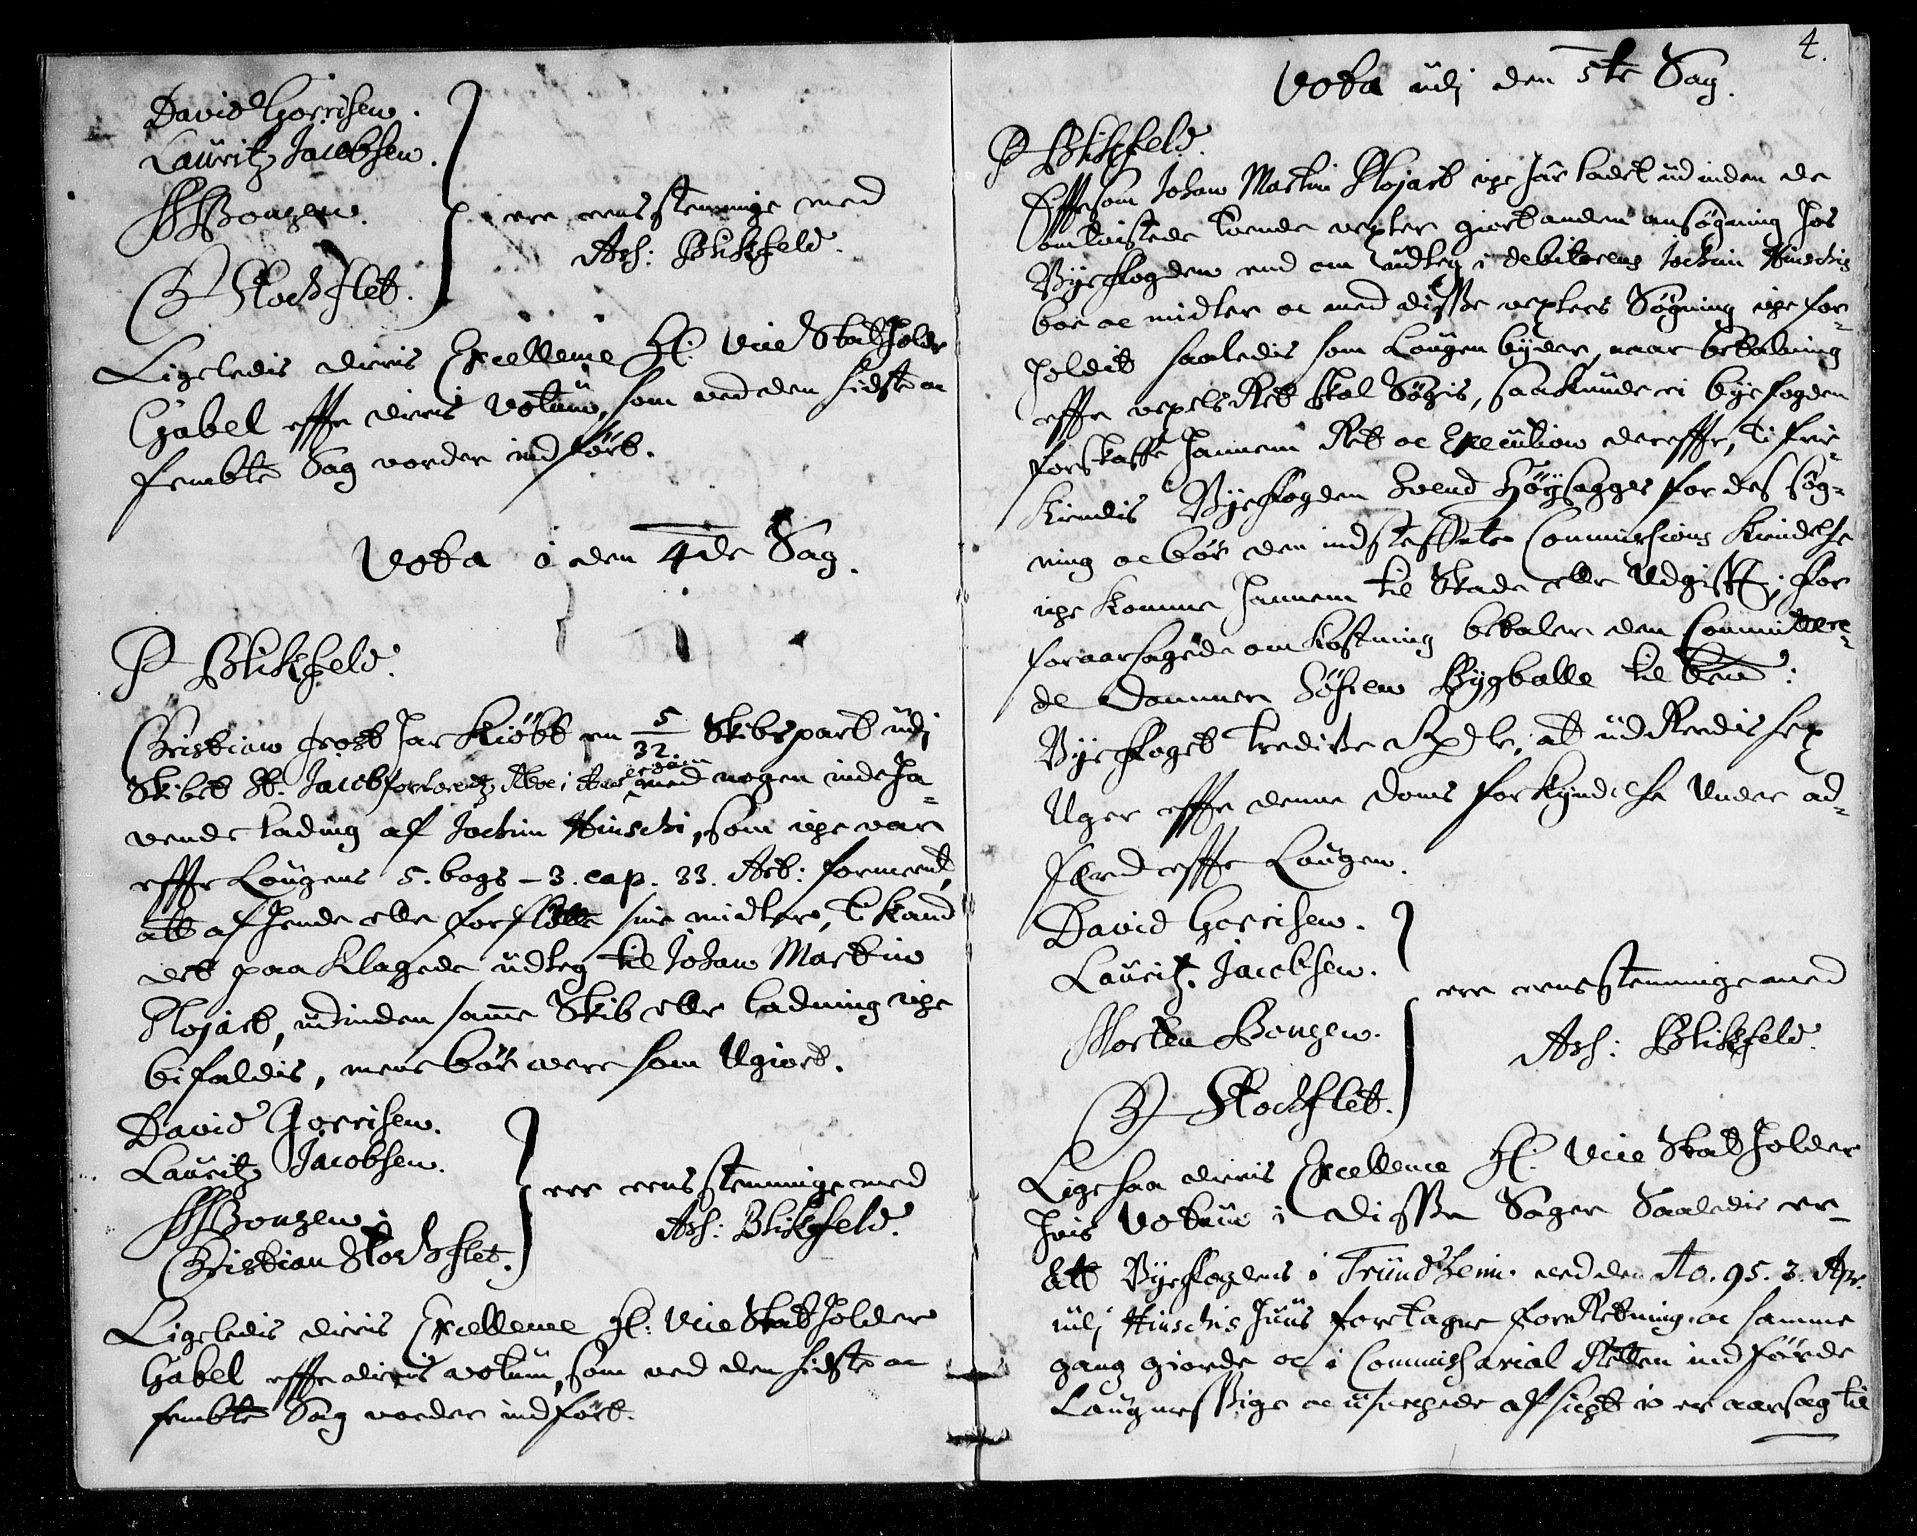 David Gorrisen.
Lauritz Jacobsen.
MBonzen.
C Stochflet.
ere eens stemmige med
Ass: Blikfeld.
Ligeledis dieris Excellence H: Vice Stadholder
Gabel effter dieris votum, som ved den sidste oc
fembte Sag vorder indført.
Vota i den 4de Sag.
P Blikfeld.
Christian Frost har kiøbt en 5/32 Skibspart udj
Skibet St. Jacob med nogen indeha-
vende ladning af Jochim Hinschi, som iche var
effter Lougens 5. bogs - 3. cap. 33. Art: forment,
att afhende eller forflötte sine midler, ti kand
det paaklagede udleg til Johan Martin
Plojart, udinden samme Skib eller ladning iche
bifaldis, mens bør være som Ugiort.
David Gorrisen.
Lauritz Jacobsen.
MBonzen.
Christian Stochflet.
ere eens stemmige med
Ass: Blikfeld.
Ligeledis dieris Excellence H: Vice Stadholder
Gabel effter dieris votum, som ved den sidste oc
fembte Sag vorder indført.
4.
Vota udj den 5te Sag.
P Blikfeld.
Effttersom Johan Martin Plojart iche har ladet udinden de
omtvistede tvende vexler giort anden ansøgning hos
Byefogden end om udleg i debitorens Jochim Hinschis
boe oc midler oc med disse vexlers Søgning iche for-
holdit saaledis som Lougen byder, naar betalning
effter vexels Ret skal Søgis, saa kunde ei byefogden
forskaffe hannem Ret oc Execution dereffter, ti frie-
kiendis Byefogden Svend Høysagger for des søg-
ning oc bør den indsteffnte Commissions Kiendelse
iche komme hannem til Skade eller Udgifft; for
foraarsagede omkostning betaler den Committere-
de dommer Søfren Bygballe til
Byefoget tredive Rdlr, at udRedis sex
Uger effter denne doms forkyndelse Under ad-
færd effter Lougen.
David Gorrisen.
Lauritz Jacobsen.
Morten Bonzen.
C Stochflet.
ere eens stemmige med
Ass: Blikfeld.
Ligesaa dieris Excellence H: Vice Stadholder
hvis Votum i disse Sager Saaledis er_
Att Byefogdens i Trundheim ved den Ao. 95. 3. Apr.
udj Hinschis huus foretagne forRetning oc samme
gang giorde oc i Commissarial Retten indførde
Laugmessige oc afsigt er aarsag til